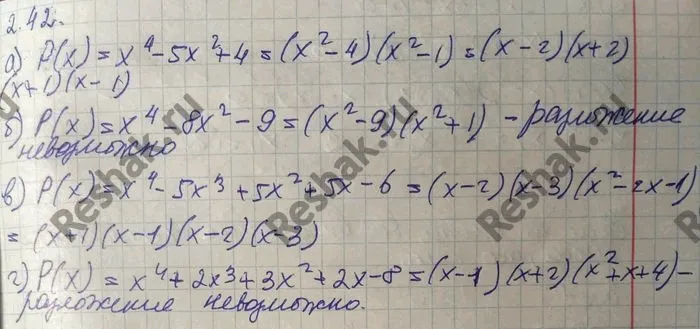 2.42.
а) P(x) = x⁴ - 5x² + 4 = (x² - 4)(x² - 1) = (x - 2)(x + 2)
(x + 1)(x - 1)
б) P(x) = x⁴ - 8x² - 9 = (x² - 9)(x² + 1) - разложение
невозможно
в) P(x) = x⁴ - 5x³ + 5x² + 5x - 6 = (x - 2)(x - 3)(x² - 2x - 1)
= (x + 1)(x - 1)(x - 2)(x - 3)
г) P(x) = x⁴ + 2x³ + 3x² + 2x - 8 = (x - 1)(x + 2)(x² + x + 4) -
разложение невозможно.
Reshak.ru
Reshak.ru
Reshak.ru
Reshak.ru